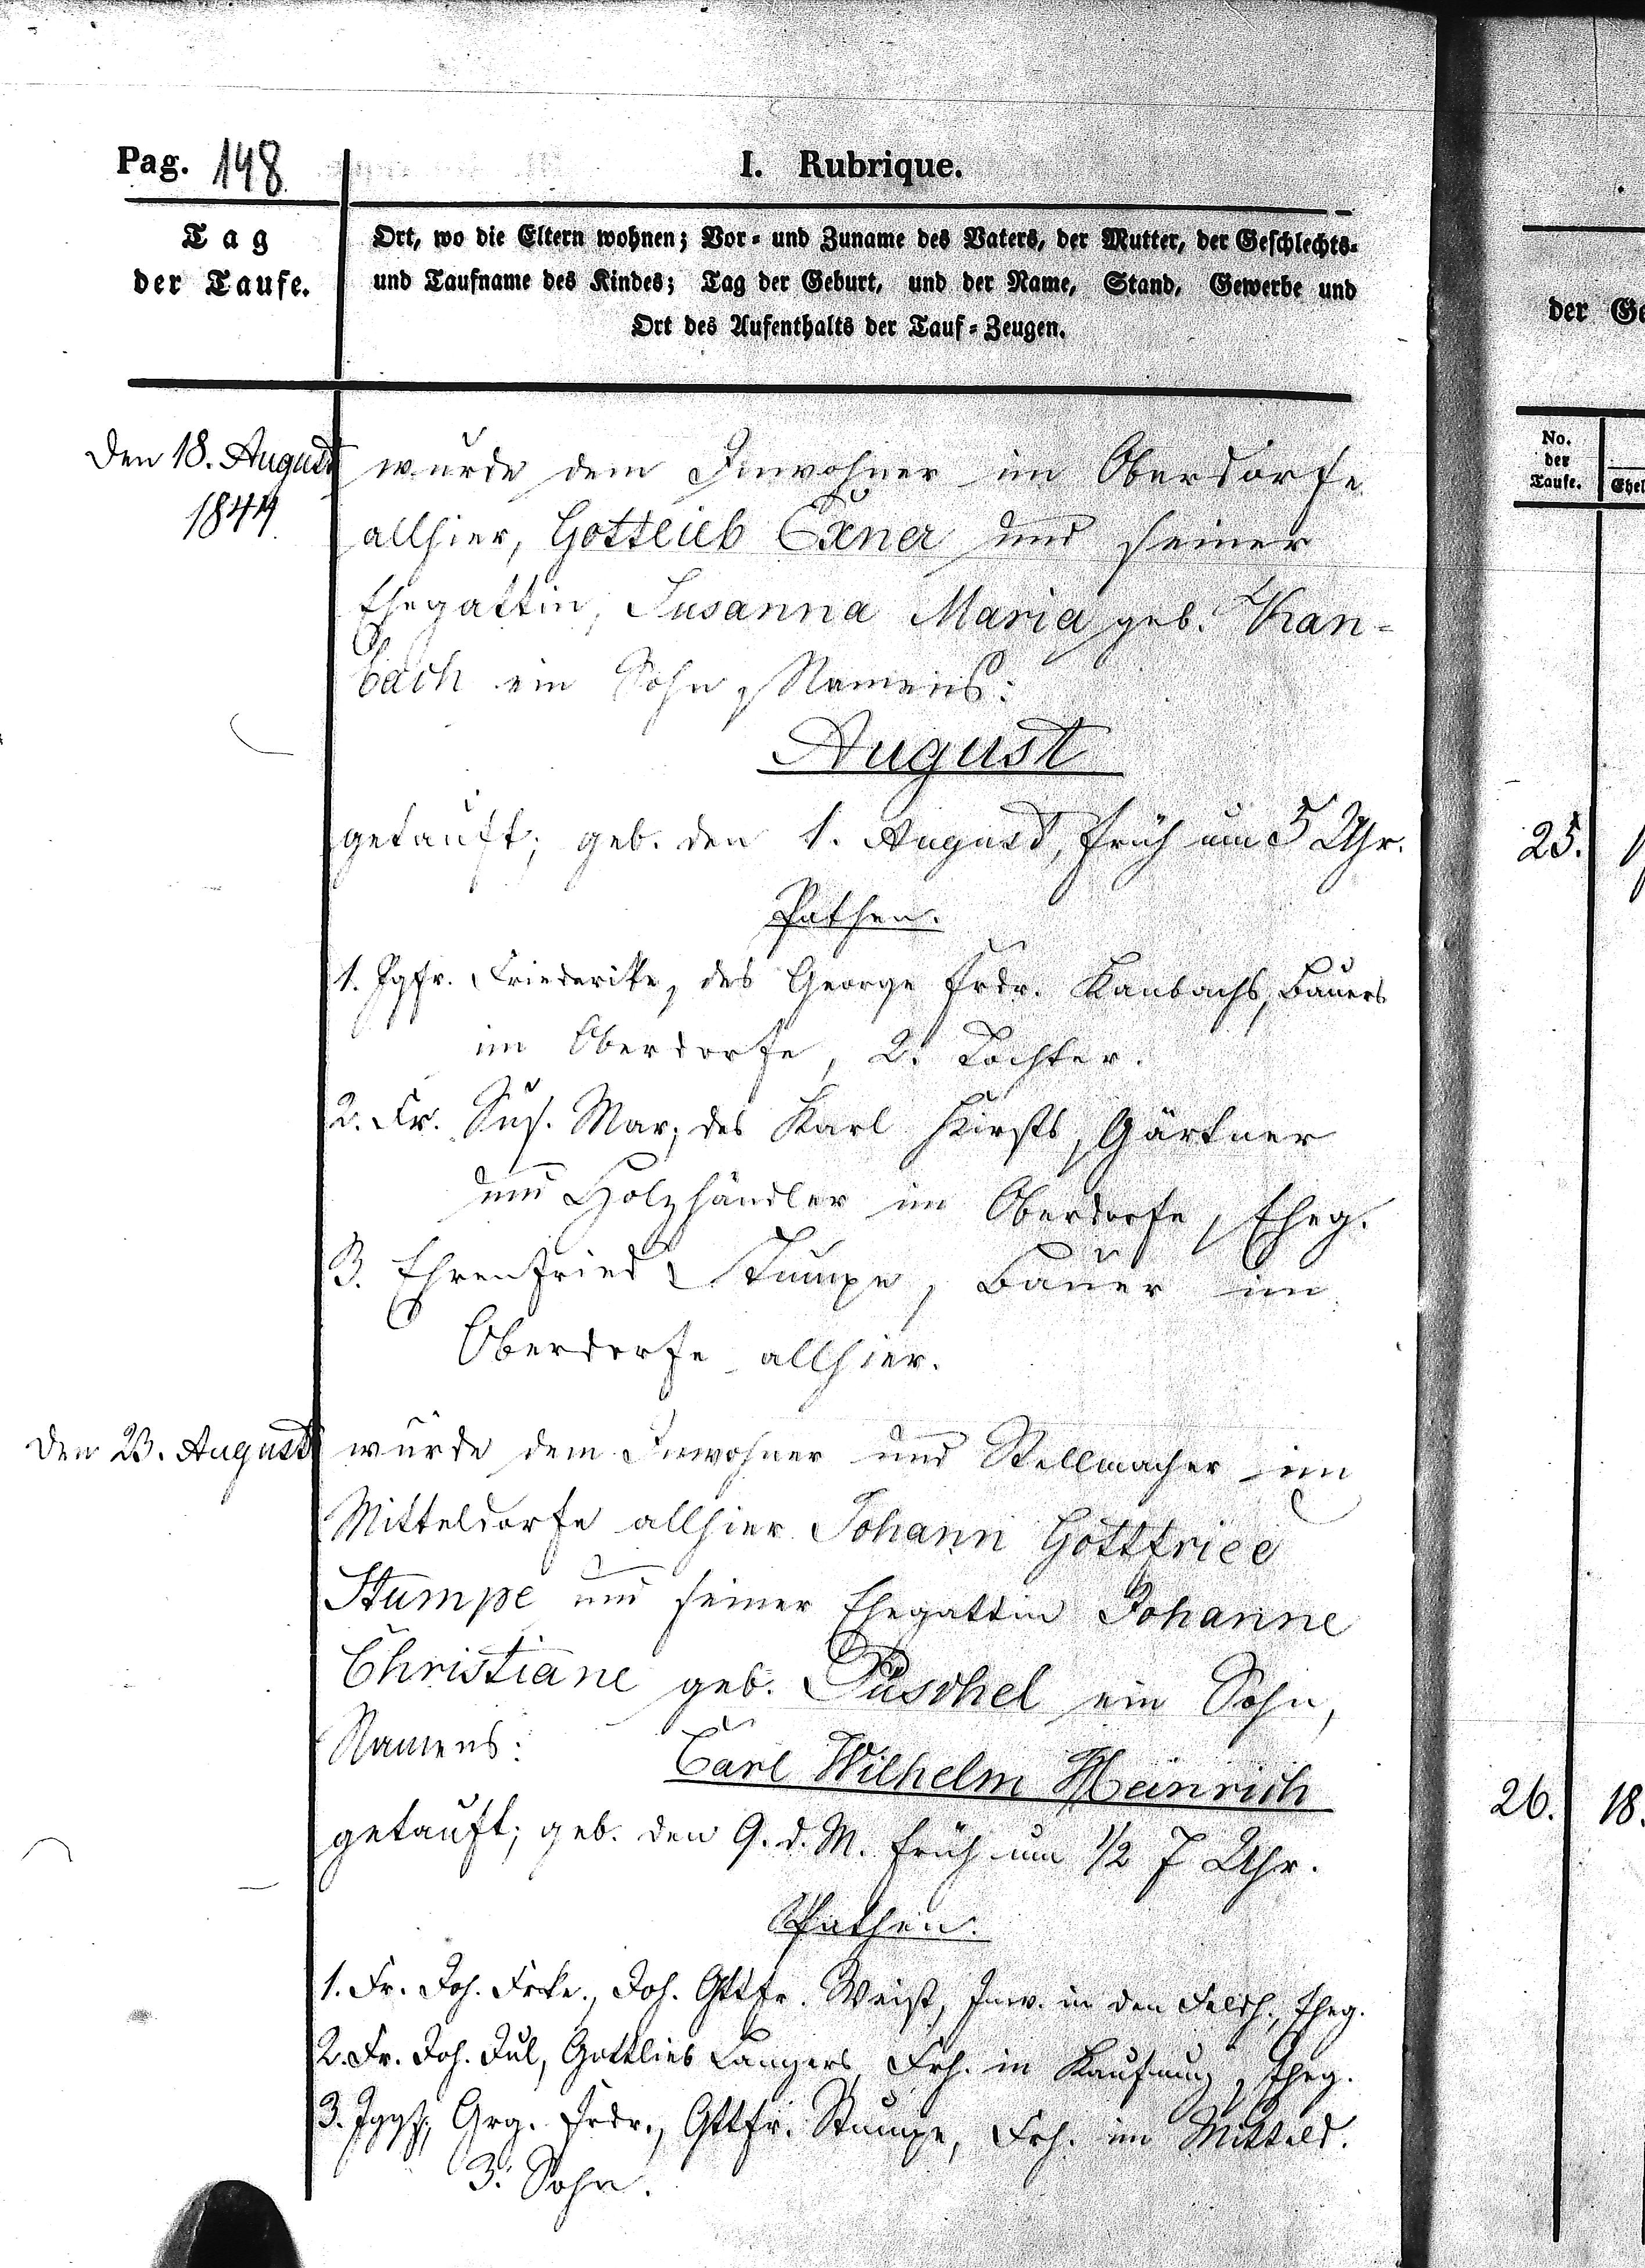 Pag. 148
I. Rubrique.
Tag
der Taufe.
Ort, wo die Eltern wohnen; Vor- und Zuname des Vaters, der Mutter, der Geschlechts-
und Taufname des Kindes; Tag der Geburt, und der Name, Stand, Gewerbe und
Ort des Aufenthalts der Tauf-Zeugen.
Den 18. August
1844.
wurde dem Inwohner im Oberdorfe
allhier, Gottlieb Exner und seiner
Ehegattin, Susanna Maria geb. Kan-
bach ein Sohn, Namens:
August
getauft; geb. den 1. August, früh um 5 Uhr.
Pathen.
1. Jgfr. Friederike, des George Frdr. Kanbachs, Bauers
im Oberdorfe, 2. Tochter.
2. Fr. Sus. Mar; des Karl Hirsts, Gärtner
und Holzhändler im Oberdorfe, Eheg.
3. Ehrenfried Stumpe, Bauer im
Oberdorfe allhier.
Den 23. August
wurde dem Inwohner und Stellmacher im
Mitteldorfe allhier Johann Gottfried
Stumpe und seiner Ehegattin Johanne
Christiane geb. Püschel ein Sohn,
Namens:
Carl Wilhelm Heinrich
getauft; geb. den 9. d. M. früh um 1/2 7 Uhr.
Pathen.
1. Fr. Joh. Frke., Joh. Gttfr. Weist, Inw. in den Feldh., Eheg.
2. Fr. Joh. Jul, Gottlieb Langers, Frh. in Kaufung, Eheg.
3. Jggs, Grg. Frdr., Gttfr. Stumpe, Frh. im Mitteld.
3. Sohn.
der Ge
No.
der
Taufe.
Ehel
25.
26.
18.